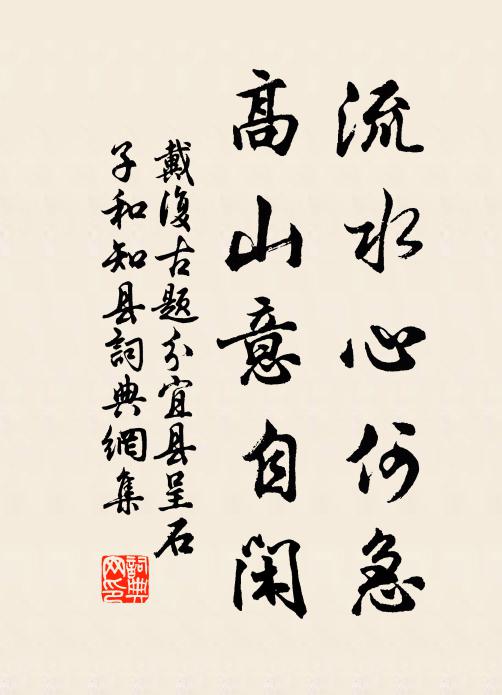 流水心何急
高山意自闲
戴復古题分宜县呈石
子和知县詞典網集
詞典
网印